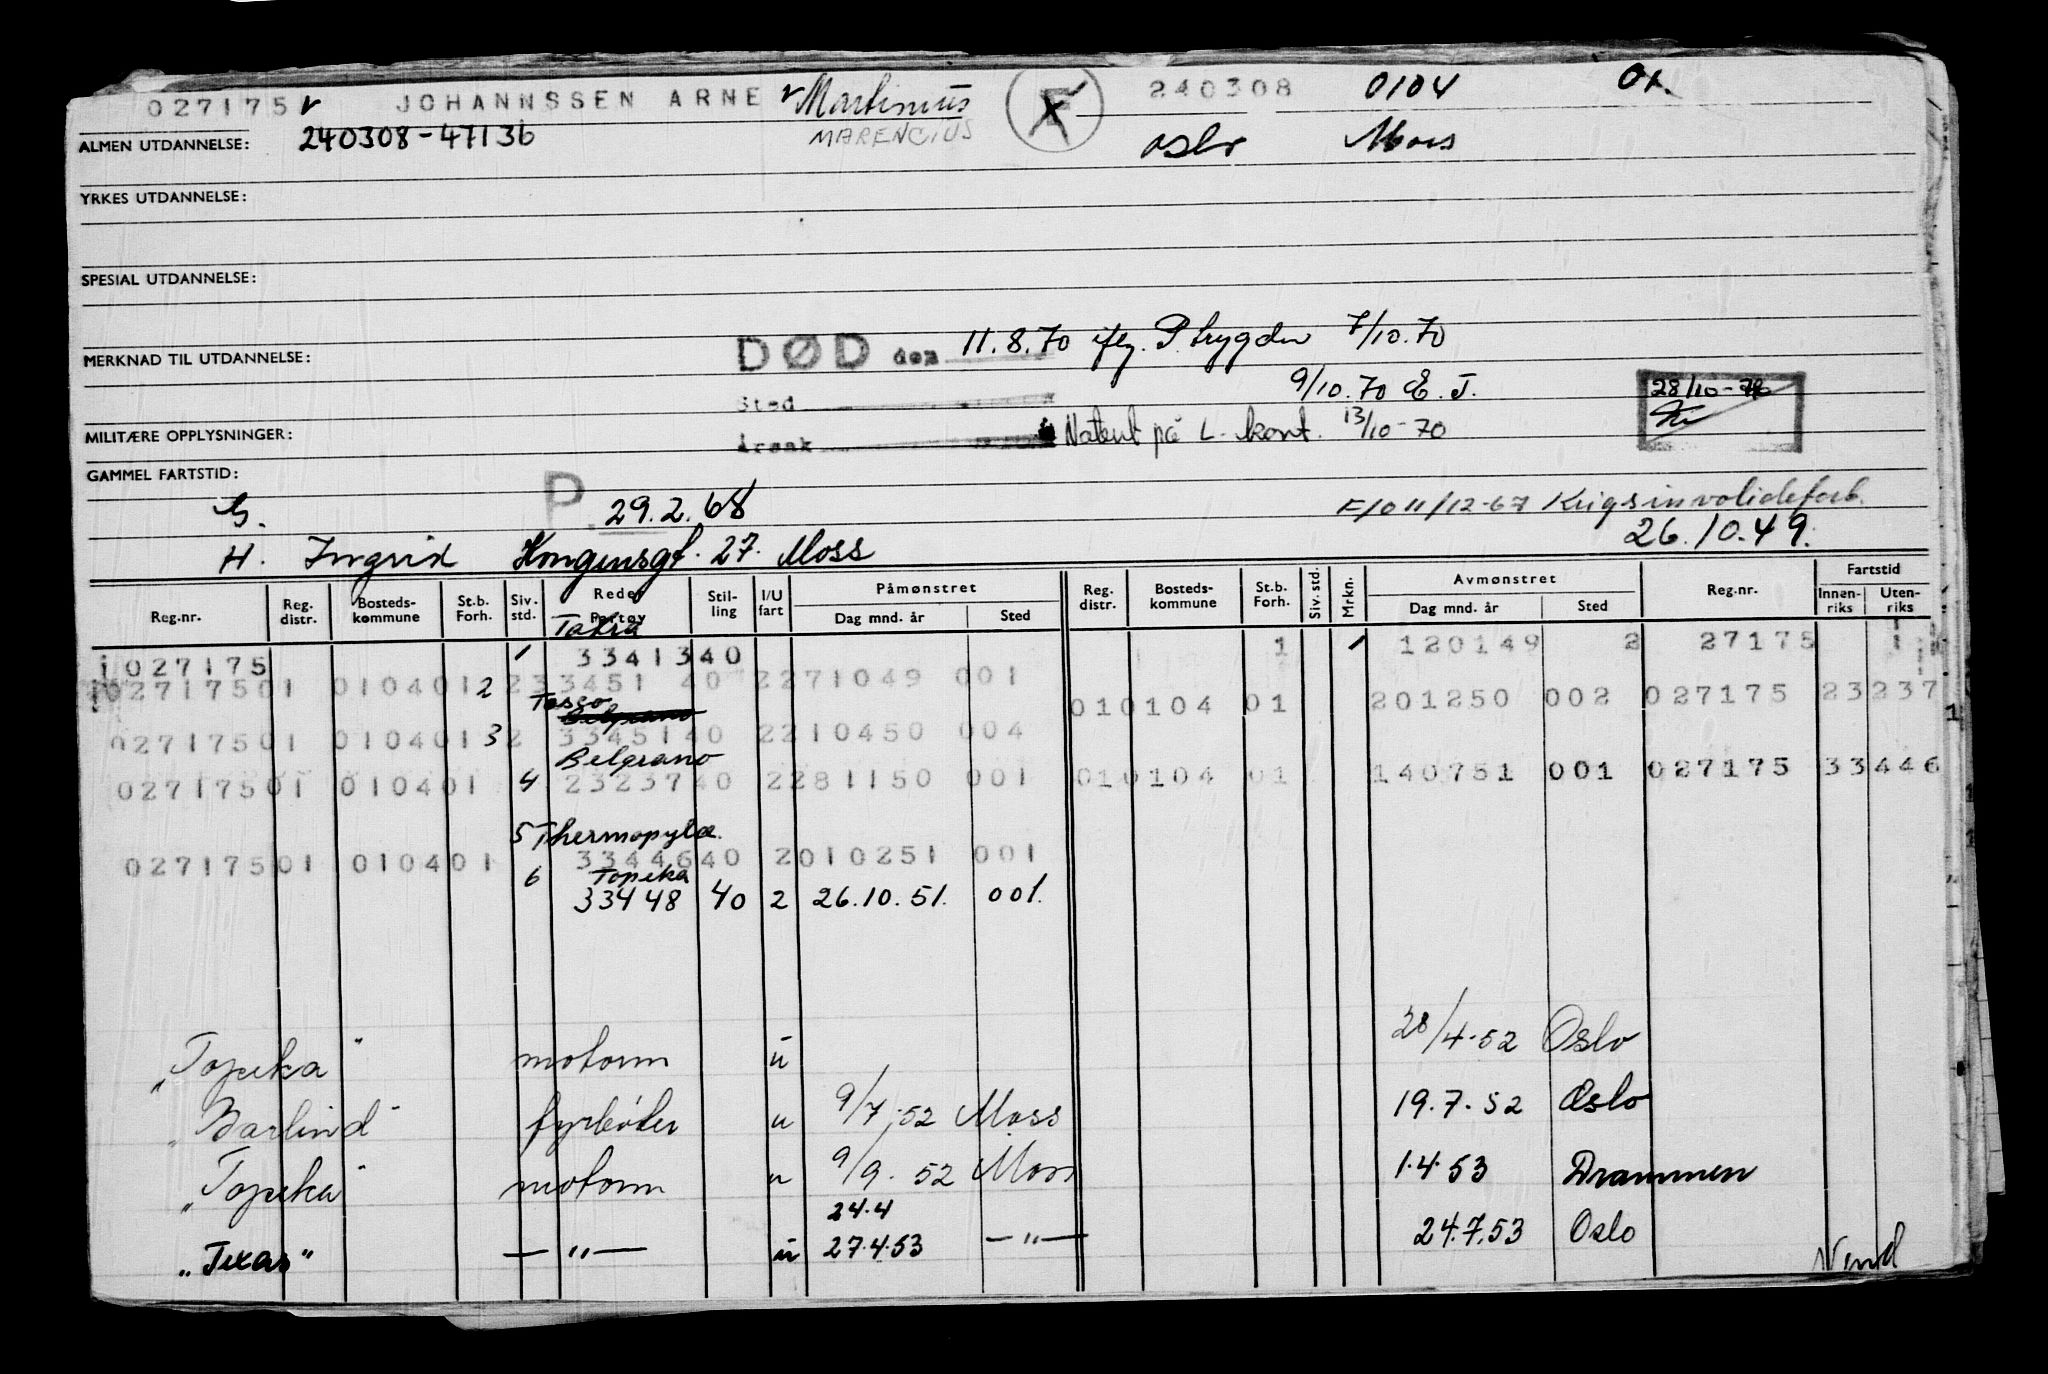 027175 v JOHANNSSEN ARNE v Martinius F 240308 0104 01.
ALMEN UTDANNELSE: 240308-47136 MARENCIUS Oslo Moss
YRKES UTDANNELSE:
SPESIAL UTDANNELSE:
MERKNAD TIL UTDANNELSE: DØD den 11.8.70 iflg. P. trygden 7/10.70
Sted 9/10.70 E. J. 28/10-70
MILITÆRE OPPLYSNINGER: Årsak Notert på L. kont. 13/10-70
GAMMEL FARTSTID:
G. P. 29.2.68 F/O 11/12-67 Krigsinvalideforb.
H. Ingrid Kongensgt. 27. Moss 26.10.49.
Reg.nr. Reg. distr. Bosteds-kommune St.b. Forh. Siv. std. Rederi Fartøy Stil-ling I/U fart Påmønstret Dag mnd. år Sted Reg. distr. Bosteds-kommune St.b. Forh. Siv. std. Mrkn. Avmønstret Dag mnd. år Sted Reg.nr. Fartstid Innen-riks Uten-riks
Takra
027175 1 33413 40 1 1 120149 2 27175 1
02717501 010401 2 2 33451 40 2271049 001
Tosco Belgrano 010104 01 201250 002 027175 23237
02717501 010401 3 2 33451 40 2210450 004
Belgrano
02717501 010401 4 23237 40 2281150 001 010104 01 140751 001 027175 33446
5 Thermopylæ.
02717501 010401 33446 40 2010251 001
6 Topeka
33448 40 2 26.10.51. 001.
"Topeka" motorm u 28/4-52 Oslo
"Barlind" fyrbøter u 9/7-52 Moss 19.7.52 Oslo
"Topeka" motorm u 9/9-52 Moss 1.4.53 Drammen
24.4
"Texas" — " — u 27.4.53 — " — 24.7.53 Oslo
Vend